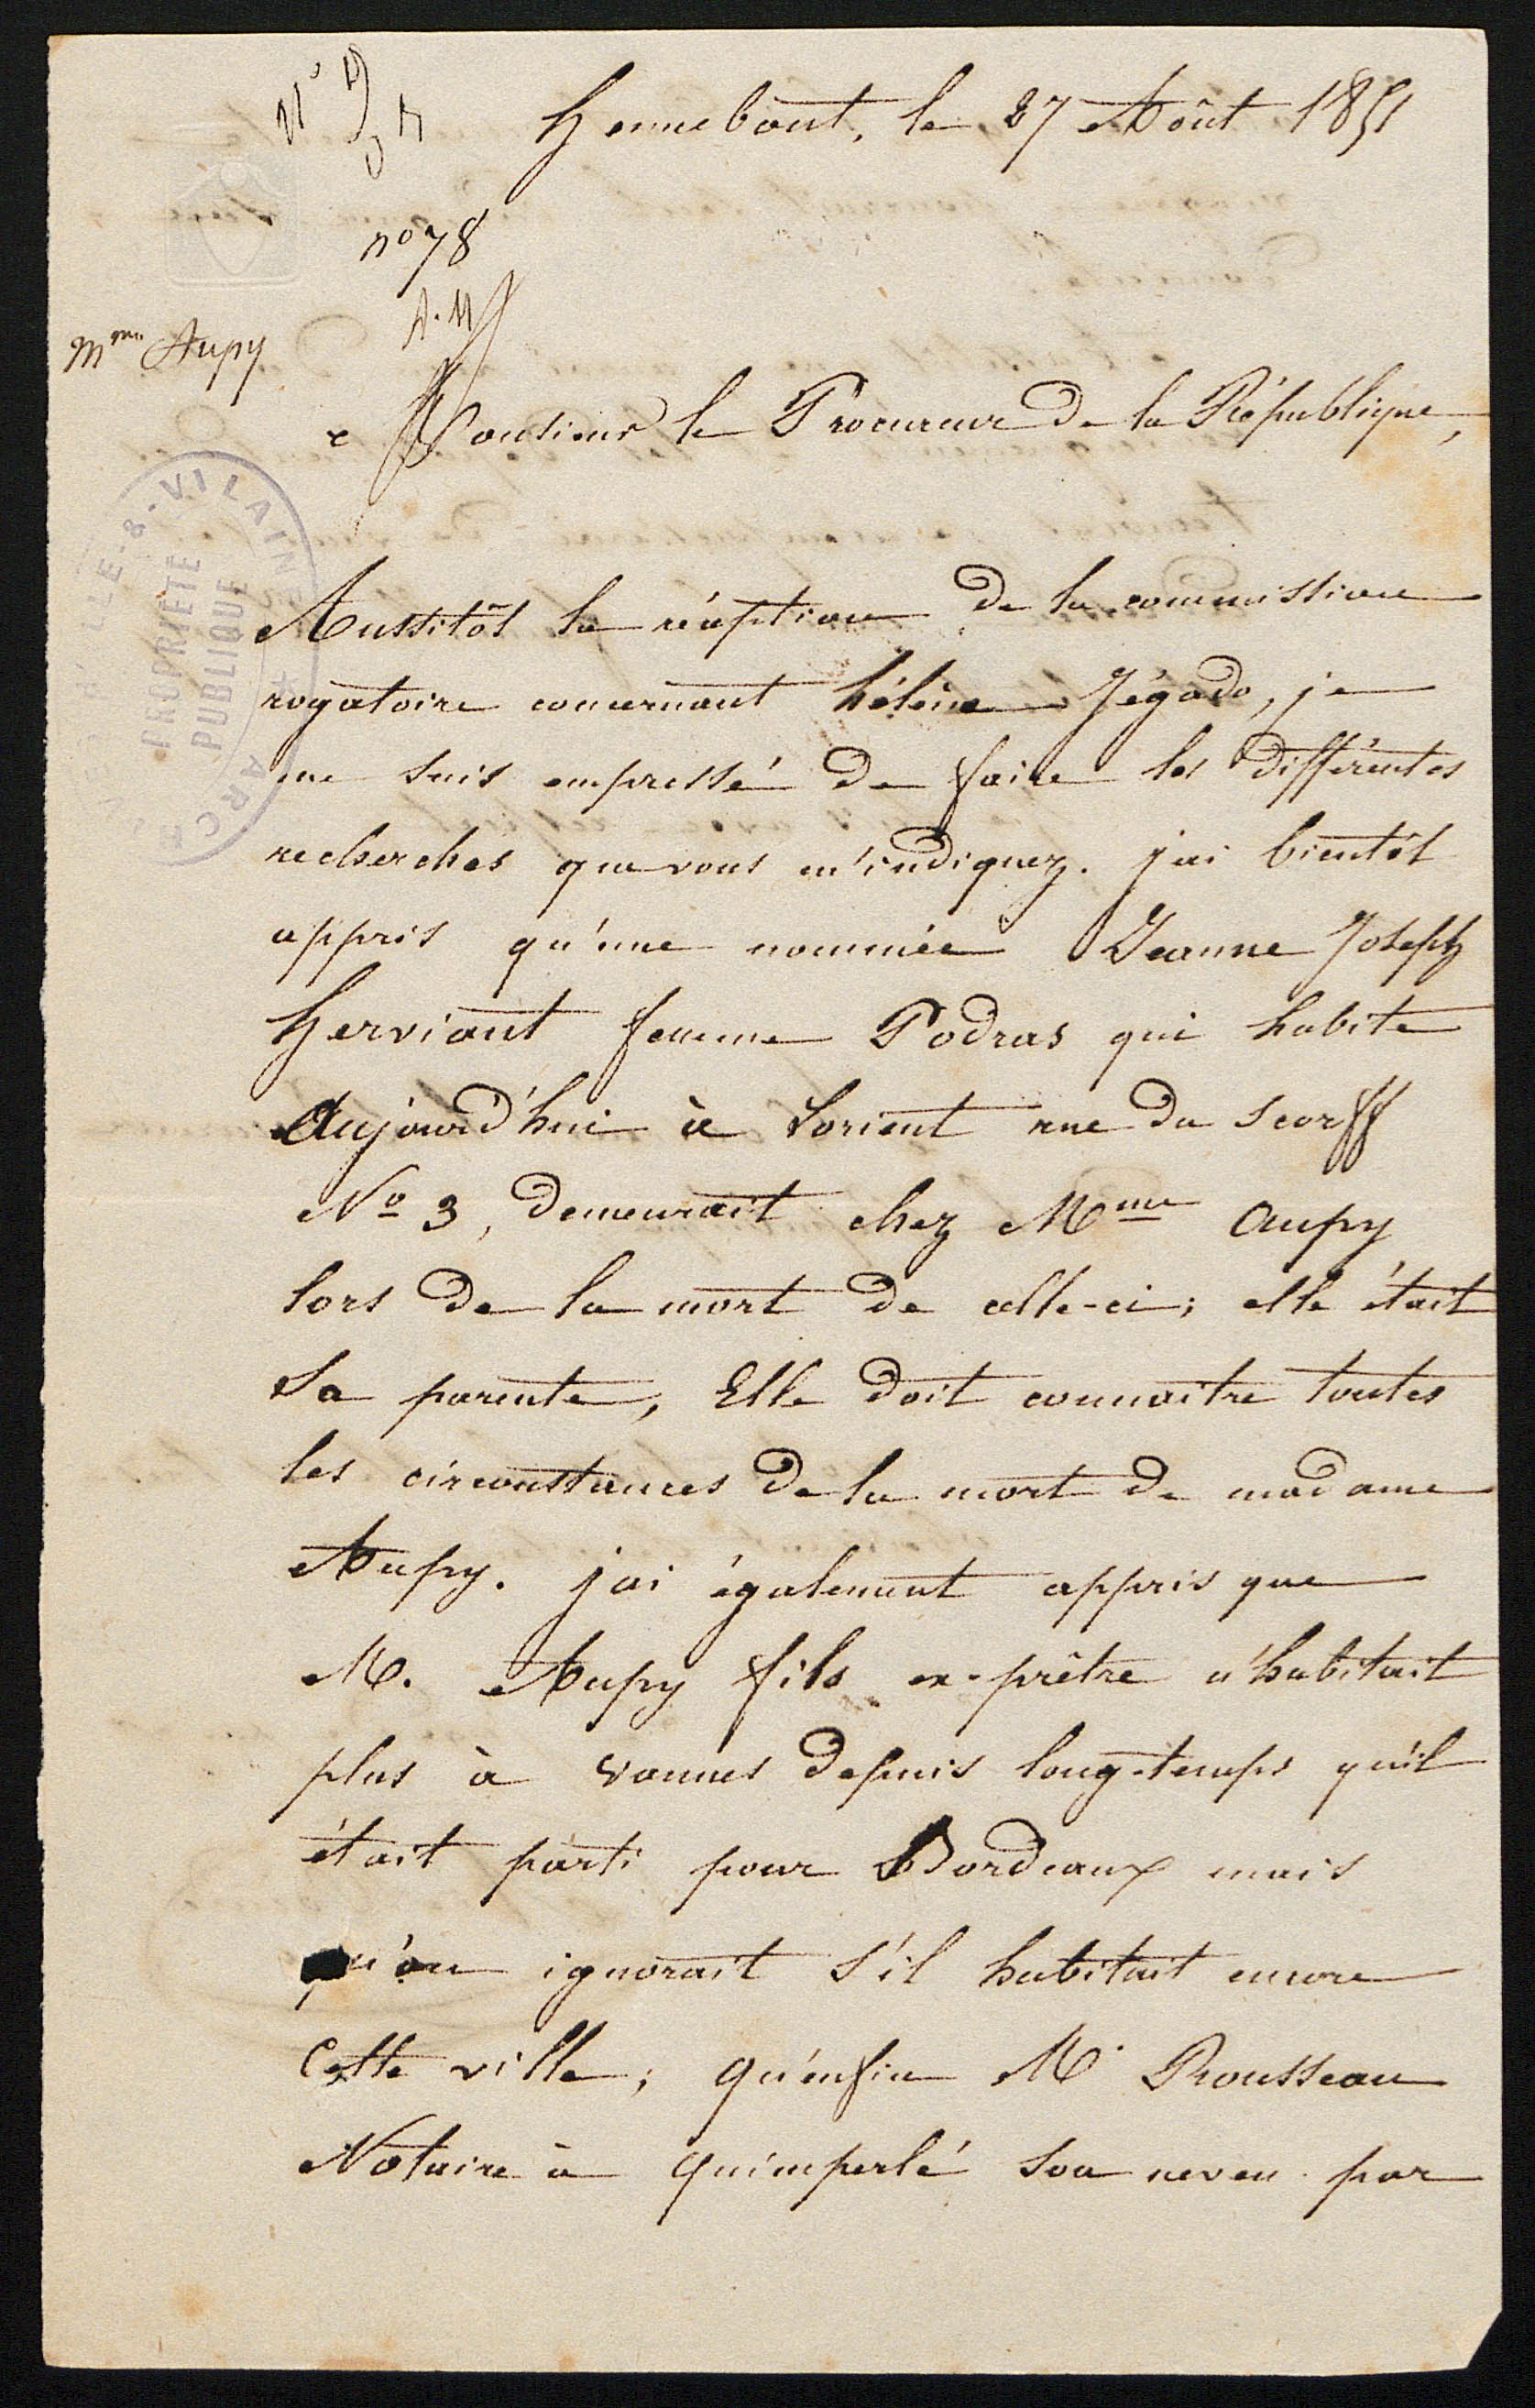 Hennebont, le 27 Août 1851
n° 78
Mme Aupy
Monsieur le Procureur de la République,
Aussitôt la réception de la commission
rogatoire concernant hélène Jégado, je
me suis empressé de faire les différentes
recherches que vous m'indiquez. j'ai bientôt
appris qu'une nommée Jeanne Joseph
Herviant femme Podras qui habite
Aujourd'hui à Lorient rue du Scorff
No 3, demeurait chez Mme Aupy
lors de la mort de celle-ci; elle était
Sa parente, Elle doit connaitre toutes
les circonstances de la mort de madame
Aupy. j'ai également appris que
M. Aupy fils ex-prêtre n'habitait
plus à vannes depuis long-temps qu'il
était parti pour Bordeaux mais
qu'on ignorait s'il habitait encore
Cette ville; qu'enfin M. Rousseau
Notaire à quimperlé son neveu par
ILLE-&-VILAINE
PROPRIÉTÉ
PUBLIQUE